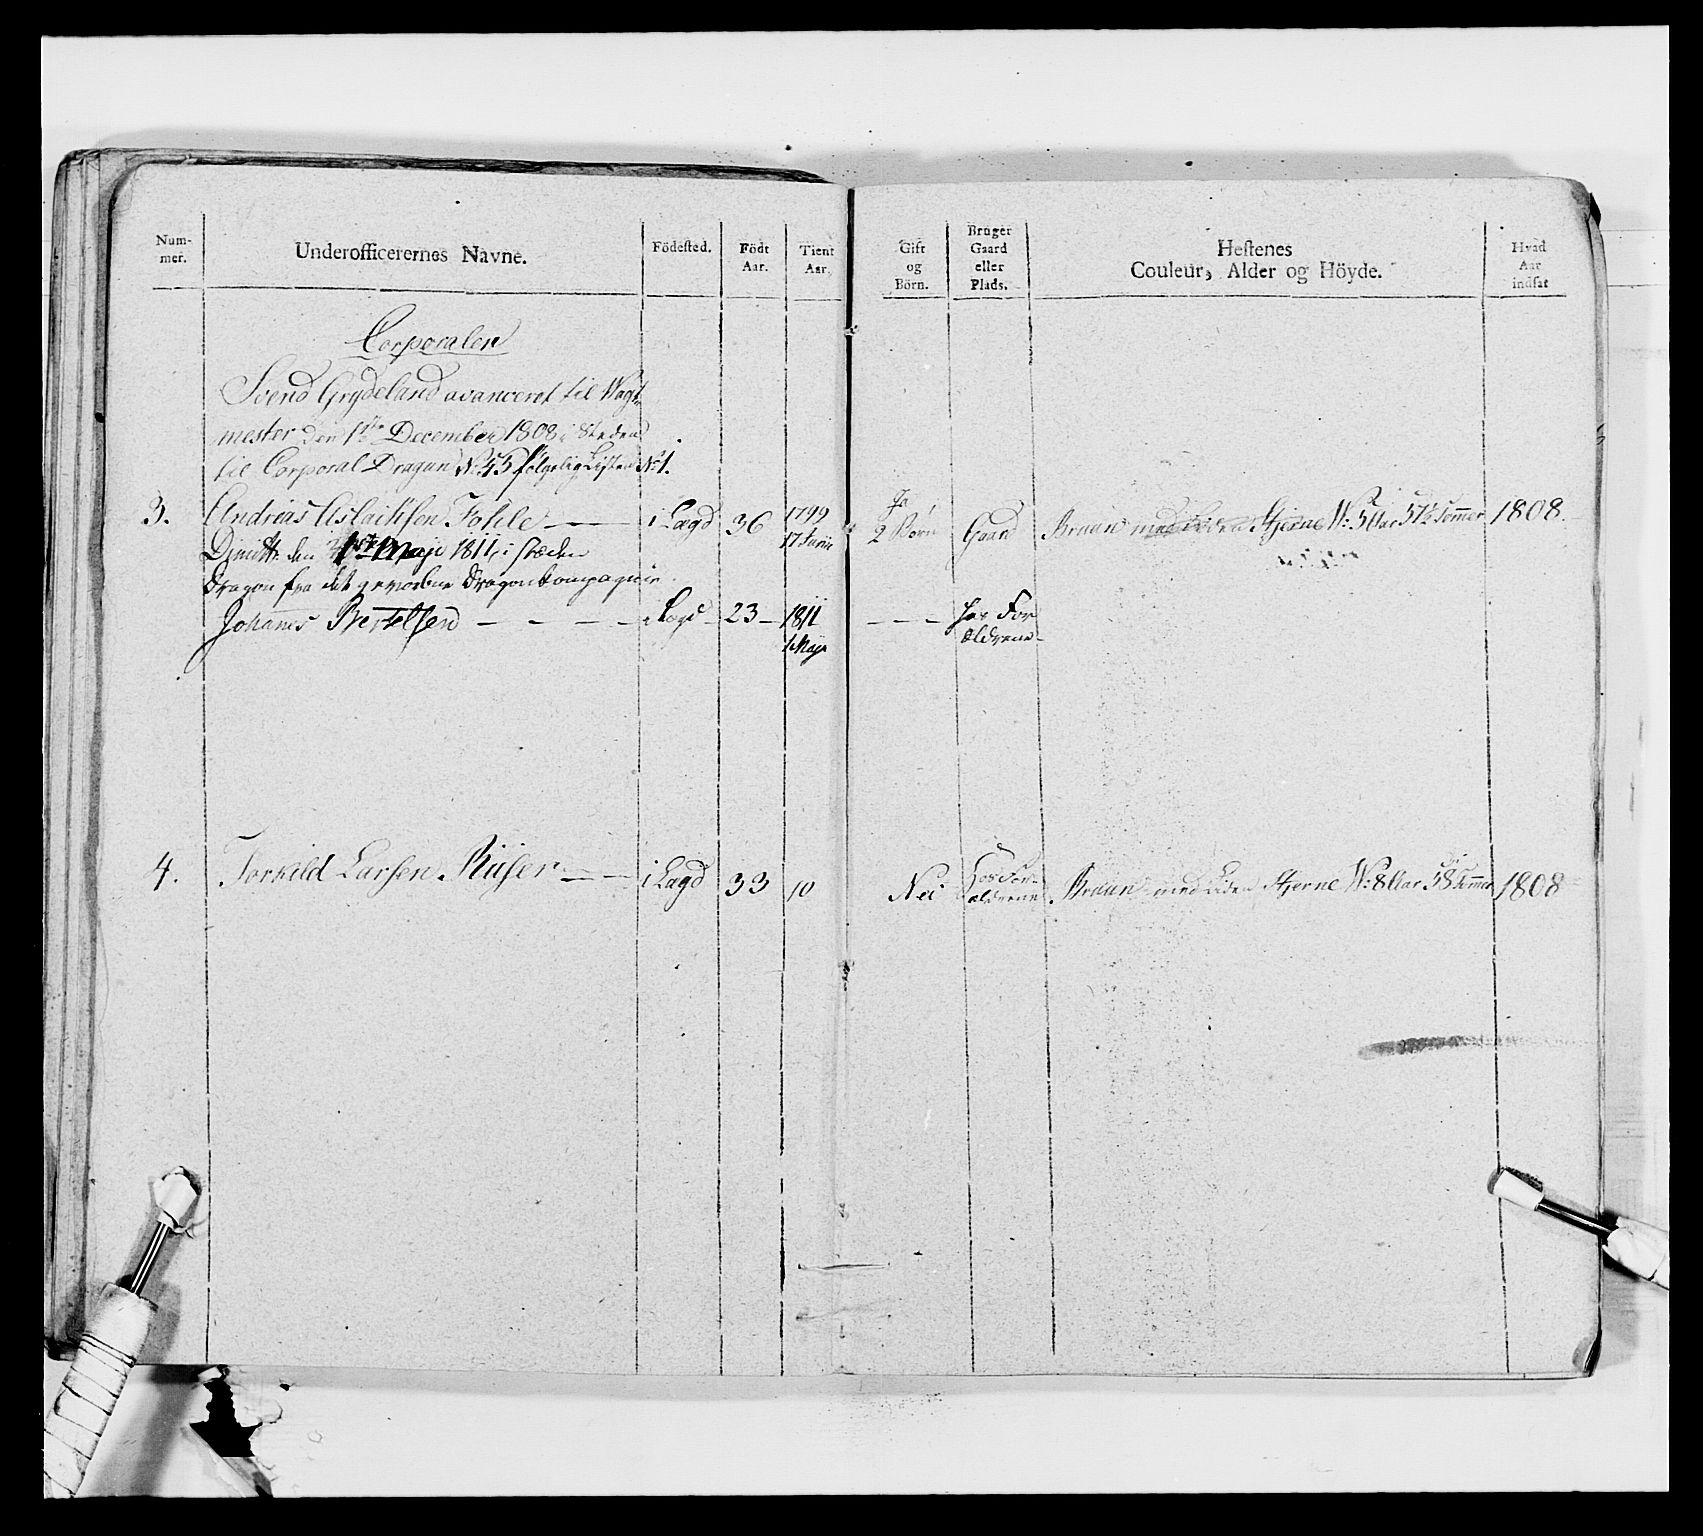 Num-
mer.
Underofficerernes Navne.
Födested.
Födt
Aar.
Tient
Aar.
Gift
og
Börn.
Bruger
Gaard
eller
Plads.
Hestenes
Couleur, Alder og Höyde.
Hvad
Aar
indsat
Corporalen
Svend Grydeland avanceret til Wagt-
mester den 1ste December 1808 i Steden
til Corporal Dragun No 45 følgelig Listen No 1.
3. Andreas Aslachsen Fohle i Lagd 36 1799 17 Junii Ja, 2 Børn Gaard Bruun med Liden Stjerne W: 5 Aar 57½ Tommer 1808.
Dimitt: den 1ste Maji 1811, i stæden
Dragon fra det gevorbne Dragon Compagnie.
Johannes Bertelsen - - - - i Lagd - 23 - 1811 1 Maji - - - hos For
ældrene -
4. Torkild Larsen Riiser i Lagd 33 10 Nei Hos For-
ældrene. Bruun med Liden Stjerne W: 8 Aar 58 Tommer 1808